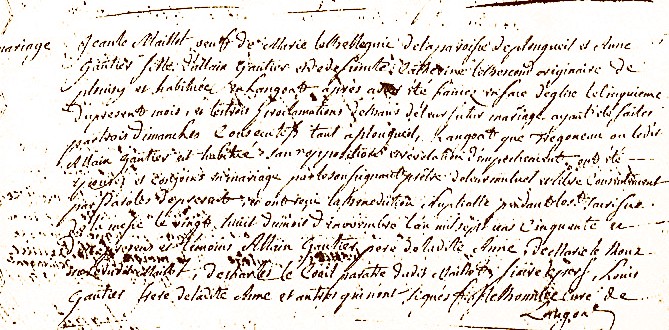 mariage
Jean Le Maillot veuff de Marie Le Bellequic de la paroisse de plougueil et Anne
Gautier fille d'allain Gautier et de defunte Catherine Le Bescond originaire de
plouisy et habituée en Langoat après avoir été fiancés en face d'eglise le cinquieme
du present mois, et les trois proclamations de bans de leur futur mariage ayant été faites
par trois dimanches Consecutifs tant a plougueil, Langoat que Tregoneau ou ledit
Allain Gautier est habitué sans opposition ni revelation d'empechement ont été
epousés et conjoins en mariage par le soussignant prêtre de leur mutuel et libre Consentement
par Paroles de present, et ont reçu la benediction Nuptialle pendant le St sacrifice
de la messe le vingt huit du mois de novembre l'an mil sept cens Cinquante et
presens et temoins Allain Gautier pere de ladite Anne, de Marie le
dudit Maillot, de charles le Coeil dudit Maillot, Louis
Gautier frere de ladite Anne et autres qui n'ont signés curé de
Langoat